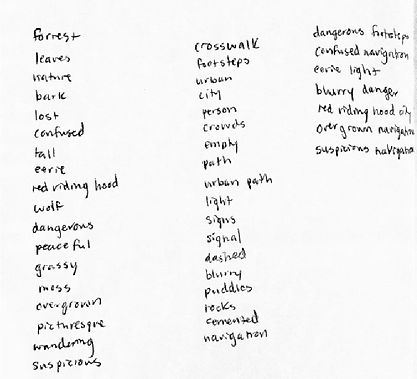 forrest
leaves
nature
bark
lost
confused
tall
eerie
red riding hood
wolf
dangerous
peaceful
grassy
moss
overgrown
picturesque
wandering
suspicious
crosswalk
footsteps
urban
city
person
crowds
empty
path
urban path
light
signs
signal
dashed
blurry
puddles
rocks
cemented
navigation
dangerous footsteps
confused navigation
eerie light
blurry danger
red riding hood city
overgrown navigation
suspicious navigation